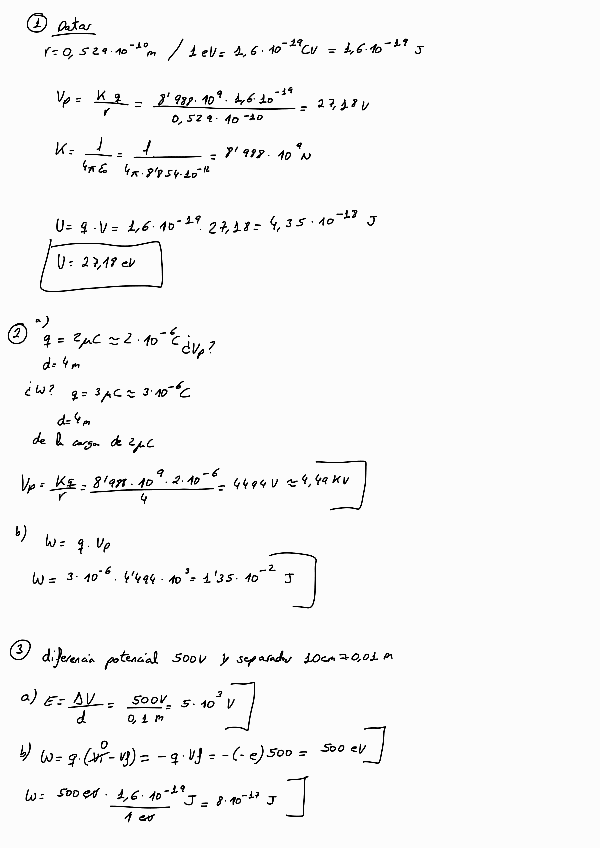 ① Datos
r = 0,529·10⁻¹⁰ m / 1 eV = 1,6·10⁻¹⁹ CV = 1,6·10⁻¹⁹ J
Vp = K q / r = 8'988·10⁹ · 1,6·10⁻¹⁹ / 0,529·10⁻¹⁰ = 27,18 V
K = 1 / 4π ε₀ = 1 / 4π·8'854·10⁻¹² = 8'988·10⁹ N
U = q·V = 1,6·10⁻¹⁹ · 27,18 = 4,35·10⁻¹⁸ J
U = 27,18 eV
② a)
q = 2μC ≈ 2·10⁻⁶ C ¿Vp?
d = 4 m
¿W? q = 3μC ≈ 3·10⁻⁶ C
d = 4 m
de la carga de 2μC
Vp = Kq / r = 8'988·10⁹ · 2·10⁻⁶ / 4 = 4494 V ≈ 4,49 KV
b)
W = q·Vp
W = 3·10⁻⁶ · 4'494·10³ = 1'35·10⁻² J
③ diferencia potencial 500V y separados 10cm = 0,01 m
a) E = ΔV / d = 500V / 0,1 m = 5·10³ V
b) W = q·(Vi 0 - Vf) = -q·Vf = -(-e) 500 = 500 eV
W = 500 eV · 1,6·10⁻¹⁹ J / 1 eV = 8·10⁻¹⁷ J